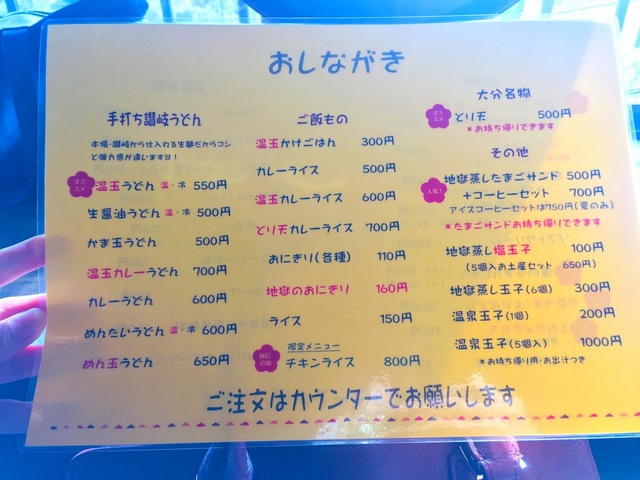 おしながき
手打ち讃岐うどん
本場・讃岐から仕入れる生麺だからコシ
と弾力感が違いますヨ!
オススメ
温玉うどん 温・冷 550円
生醤油うどん 温・冷 500円
かま玉うどん 500円
温玉カレーうどん 700円
カレーうどん 600円
めんたいうどん 温・冷 600円
めん玉うどん 650円
ご飯もの
温玉かけごはん 300円
カレーライス 500円
温玉カレーライス 600円
とり天カレーライス 700円
おにぎり(各種) 110円
地獄のおにぎり 160円
ライス 150円
限定メニュー
チキンライス 800円
大分名物
オススメ
とり天 500円
*お持ち帰りできます
その他
人気!
地獄蒸したまごサンド 500円
+コーヒーセット 700円
アイスコーヒーセットは750円(夏のみ)
*たまごサンドお持ち帰りできます
地獄蒸し塩玉子 100円
(5個入お土産セット 650円)
地獄蒸し玉子(6個) 300円
温泉玉子(1個) 200円
温泉玉子(5個入) 1000円
*お持ち帰り用・お出汁つき
ご注文はカウンターでお願いします